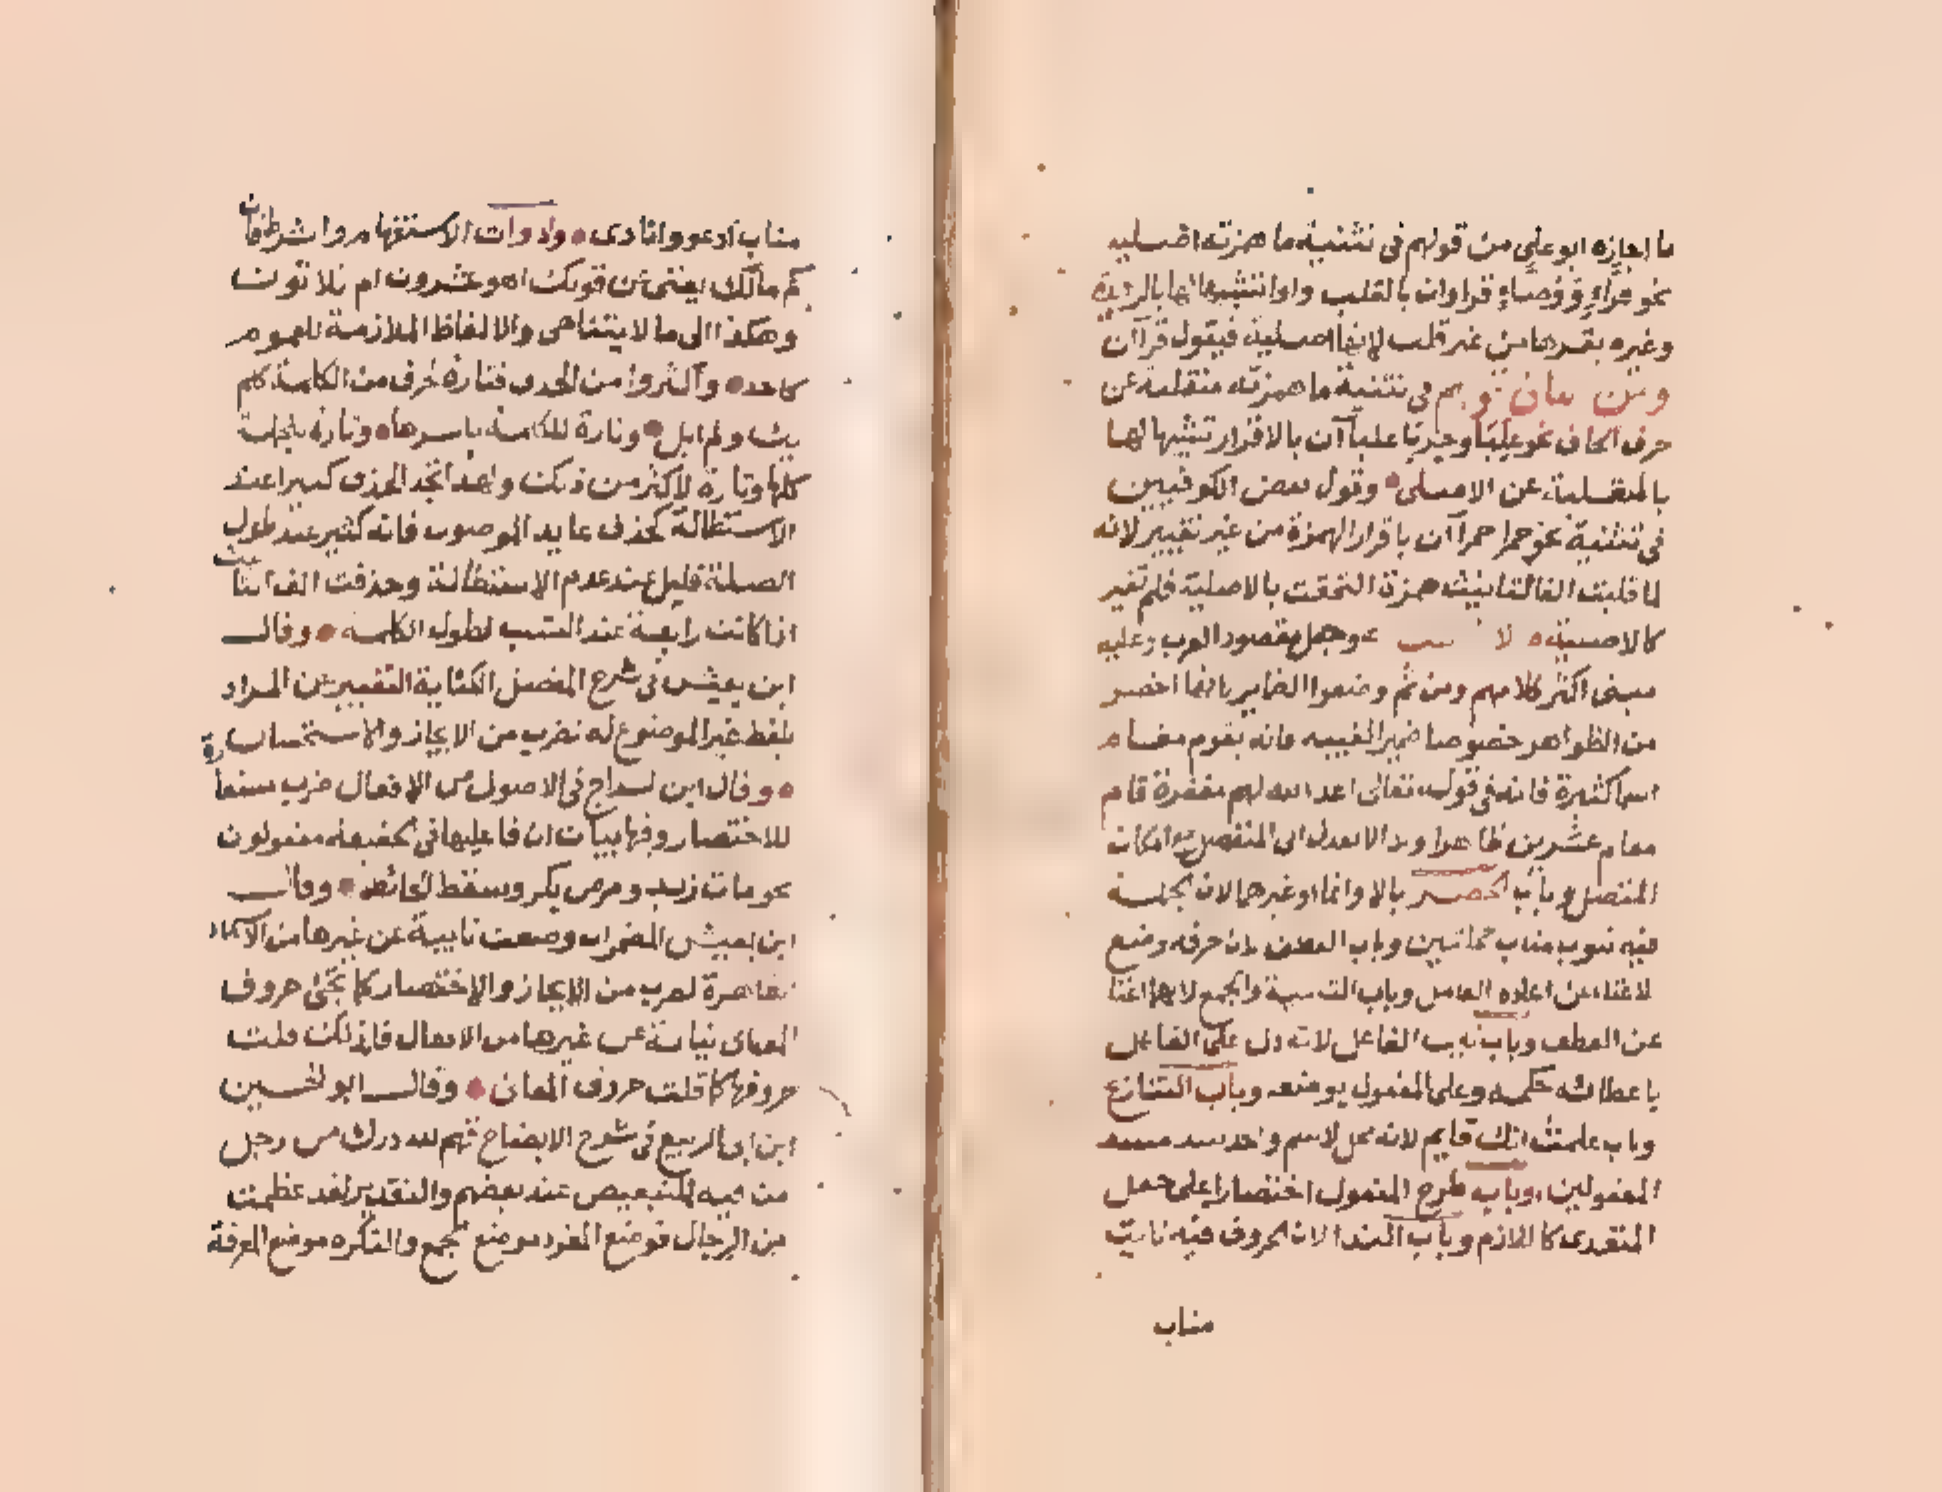 ما اجازه ابو علي من قولهم في تثنية ما همزته اصليه
نحو قراء ووضاء قراوان بالقلب واوا تشبيها لها بالزايدة
وغيره يقرها من غير قلب لانها اصلية فيقول قراان
ومن في تثنية ما همزته منقلبة عن
حرف الحاق نحو علباء وحرباء علباآن بالاقرار تشبيها لها
بالمنقلبة عن الاصلى وقول بعض الكوفيين
في تثنية نحو حمرا حمراآن باقرار الهمزة من غير تغيير لانه
لما قلبت الف التانيث همزة التحقت بالاصلية فلم تغير
كالاصلية وهو جل مقصود العرب وعليه
مبنى اكثر كلامهم ومن ثم وضعوا الضماير لانها اخصر
من الظواهر خصوصا ضمير الغيبه فانه يقوم مقام
اسما كثيرة فانه في قوله تعالى اعد الله لهم مغفرة قام
مقام عشرين ظاهرا ولذا لا يعدل الى المنفصل مع امكان
المتصل وباب الحصر بالا وانما وغيرهما لان الجملة
فيه تنوب مناب جملتين وباب العطف لان حرفه وضع
للاغناء عن اعادة العامل وباب التثنية والجمع لانهما اغنيا
عن العطف وباب نايب الفاعل لانه دل على الفاعل
باعطائه حكمه وعلى المفعول بوضعه وباب التنازع
وباب علمت انك قايم لانه محل لاسم واحد سد مسد
المفعولين وباب طرح المفعول اختصارا على جعل
المتعدى كاللازم وباب الندا لان الحروف فيه نابت
مناب
مناب ادعو وانادى وادوات الاستفهام والشرط فان
كم مالك يغنى عن قولك اهو عشرون ام ثلاثون
وهكذا الى ما لا يتناهى والالفاظ الملازمة للعموم
كاحد واكثروا من الحذف فتارة لحرف من الكلمة كلم
يك ولم ابل وتارة للكلمة باسرها وتارة للجملة
كلها وتارة لاكثر من ذلك ولهذا تجد الحذف كثيرا عند
الاستطالة كحذف عايد الموصول فانه كثير عند طول
الصلة قليل عند عدم الاستطالة وحذفت الف التانيث
اذا كانت رابعة عند النسب لطول الكلمه وقال
ابن يعيش في شرح المفصل الكناية التعبير عن المراد
بلفظ غير الموضوع له لضرب من الايجاز والاستحسان
وقال ابن السراج في الاصول من الافعال ضرب مستعارة
للاختصار وفيها بيان ان فاعليها في الحقيقة مفعولون
نحو مات زيد ومرض بكر وسقط الحائط وقال
ابن يعيش المضمرات وضعت نايبة عن غيرها من الاسماء
الظاهرة لضرب من الايجاز والاختصار كما تجئ حروف
المعاني نيابة عن غيرها من الافعال فلذلك قلت
حروفها كما قلت حروف المعاني وقال ابو الحسين
ابن ابى الربيع في شرح الايضاح قولهم لله درك من رجل
من فيه للتبعيض عند بعضهم والتقدير لقد عظمت
من الرجال فوضع المفرد موضع الجمع والنكره موضع المعرفة